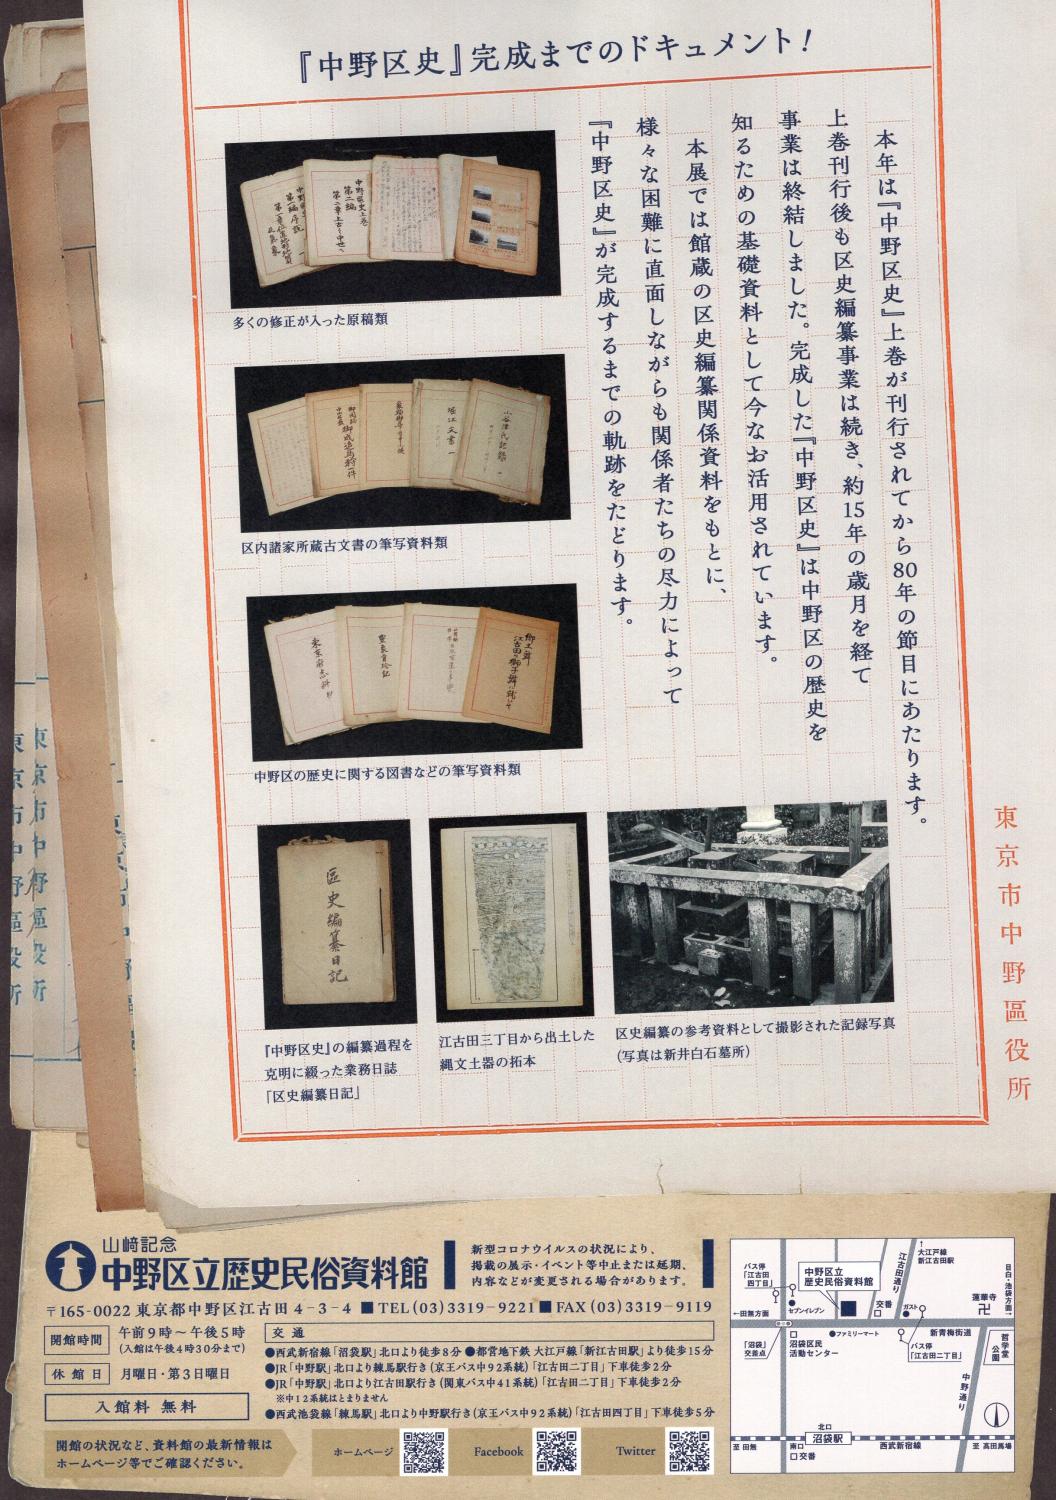 『中野区史』完成までのドキュメント！
本年は『中野区史』上巻が刊行されてから80年の節目にあたります。
上巻刊行後も区史編纂事業は続き、約15年の歳月を経て
事業は終結しました。完成した『中野区史』は中野区の歴史を
知るための基礎資料として今なお活用されています。
本展では館蔵の区史編纂関係資料をもとに、
様々な困難に直面しながらも関係者たちの尽力によって
『中野区史』が完成するまでの軌跡をたどります。
多くの修正が入った原稿類
堀江文書 一
区内諸家所蔵古文書の筆写資料類
中野区の歴史に関する図書などの筆写資料類
區史編纂日記
『中野区史』の編纂過程を
克明に綴った業務日誌
「区史編纂日記」
江古田三丁目から出土した
縄文土器の拓本
区史編纂の参考資料として撮影された記録写真
(写真は新井白石墓所)
東京市中野區役所
東京市中野區役所
東京市中野區役所
山﨑記念
中野区立歴史民俗資料館
新型コロナウイルスの状況により、
掲載の展示・イベント等中止または延期、
内容などが変更される場合があります。
〒165-0022 東京都中野区江古田4-3-4 ■TEL(03)3319-9221 ■FAX(03)3319-9119
開館時間 午前9時～午後5時
(入館は午後4時30分まで)
休館日 月曜日・第3日曜日
入館料 無料
交通
●西武新宿線「沼袋駅」北口より徒歩8分 ●都営地下鉄 大江戸線「新江古田駅」より徒歩15分
●JR「中野駅」北口より練馬駅行き(京王バス中92系統)「江古田二丁目」下車徒歩2分
●JR「中野駅」北口より江古田駅行き(関東バス中41系統)「江古田二丁目」下車徒歩2分
※中12系統はとまりません
●西武池袋線「練馬駅」北口より中野駅行き(京王バス中92系統)「江古田四丁目」下車徒歩5分
開館の状況など、資料館の最新情報は
ホームページ等でご確認ください。
ホームページ
Facebook
Twitter
↑大江戸線
新江古田駅
江古田通り
目白・池袋方面→
バス停
「江古田
四丁目」
中野区立
歴史民俗資料館
セブンイレブン
交番
ガスト
蓮華寺
卍
←田無方面
「沼袋」
交差点
沼袋区民
活動センター
ファミリーマート
新青梅街道
バス停
「江古田二丁目」
哲学堂
公園
中野通り
北口
沼袋駅
南口
交番
至 田無
西武新宿線
至 高田馬場